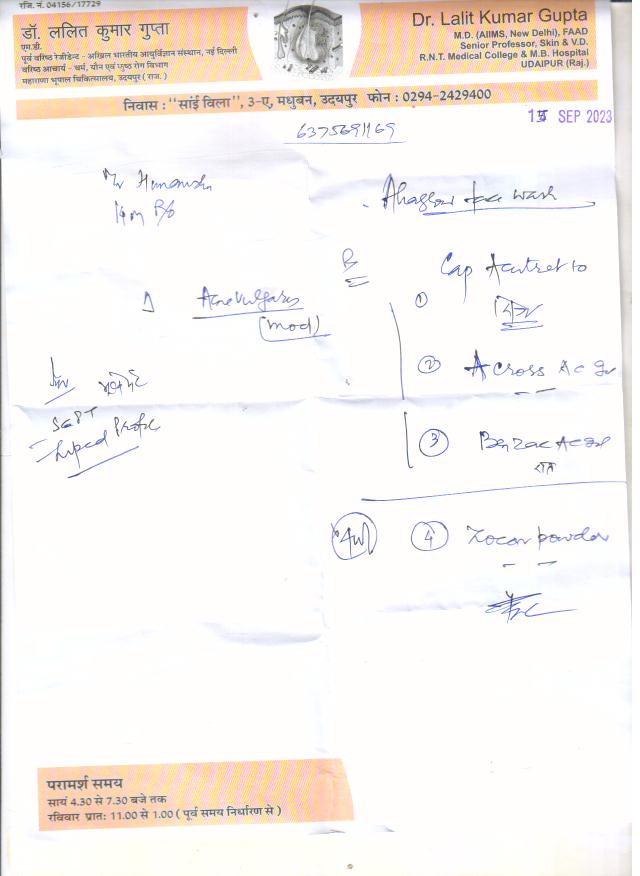 रजि. नं. 04156/17729
डॉ. ललित कुमार गुप्ता
एम.डी.
पूर्व वरिष्ठ रेजीडेन्ट - अखिल भारतीय आयुर्विज्ञान संस्थान, नई दिल्ली
वरिष्ठ आचार्य - चर्म, यौन एवं कुष्ठ रोग विभाग
महाराणा भूपाल चिकित्सालय, उदयपुर ( राज. )
Dr. Lalit Kumar Gupta
M.D. (AIIMS, New Delhi), FAAD
Senior Professor, Skin & V.D.
R.N.T. Medical College & M.B. Hospital
UDAIPUR (Raj.)
निवास : "सांई विला", 3-ए, मधुबन, उदयपुर फोन : 0294-2429400
SEP 2023
6375691169
Mr
Ahaglow face wash
Cap Acutret 10
①
Acne vulgaris
(mod)
② Across Ac
SGPT
Lipid Profile
③ Benzac Ac Gel
रात
④ Zocon powder
परामर्श समय
सायं 4.30 से 7.30 बजे तक
रविवार प्रातः 11.00 से 1.00 ( पूर्व समय निर्धारण से )